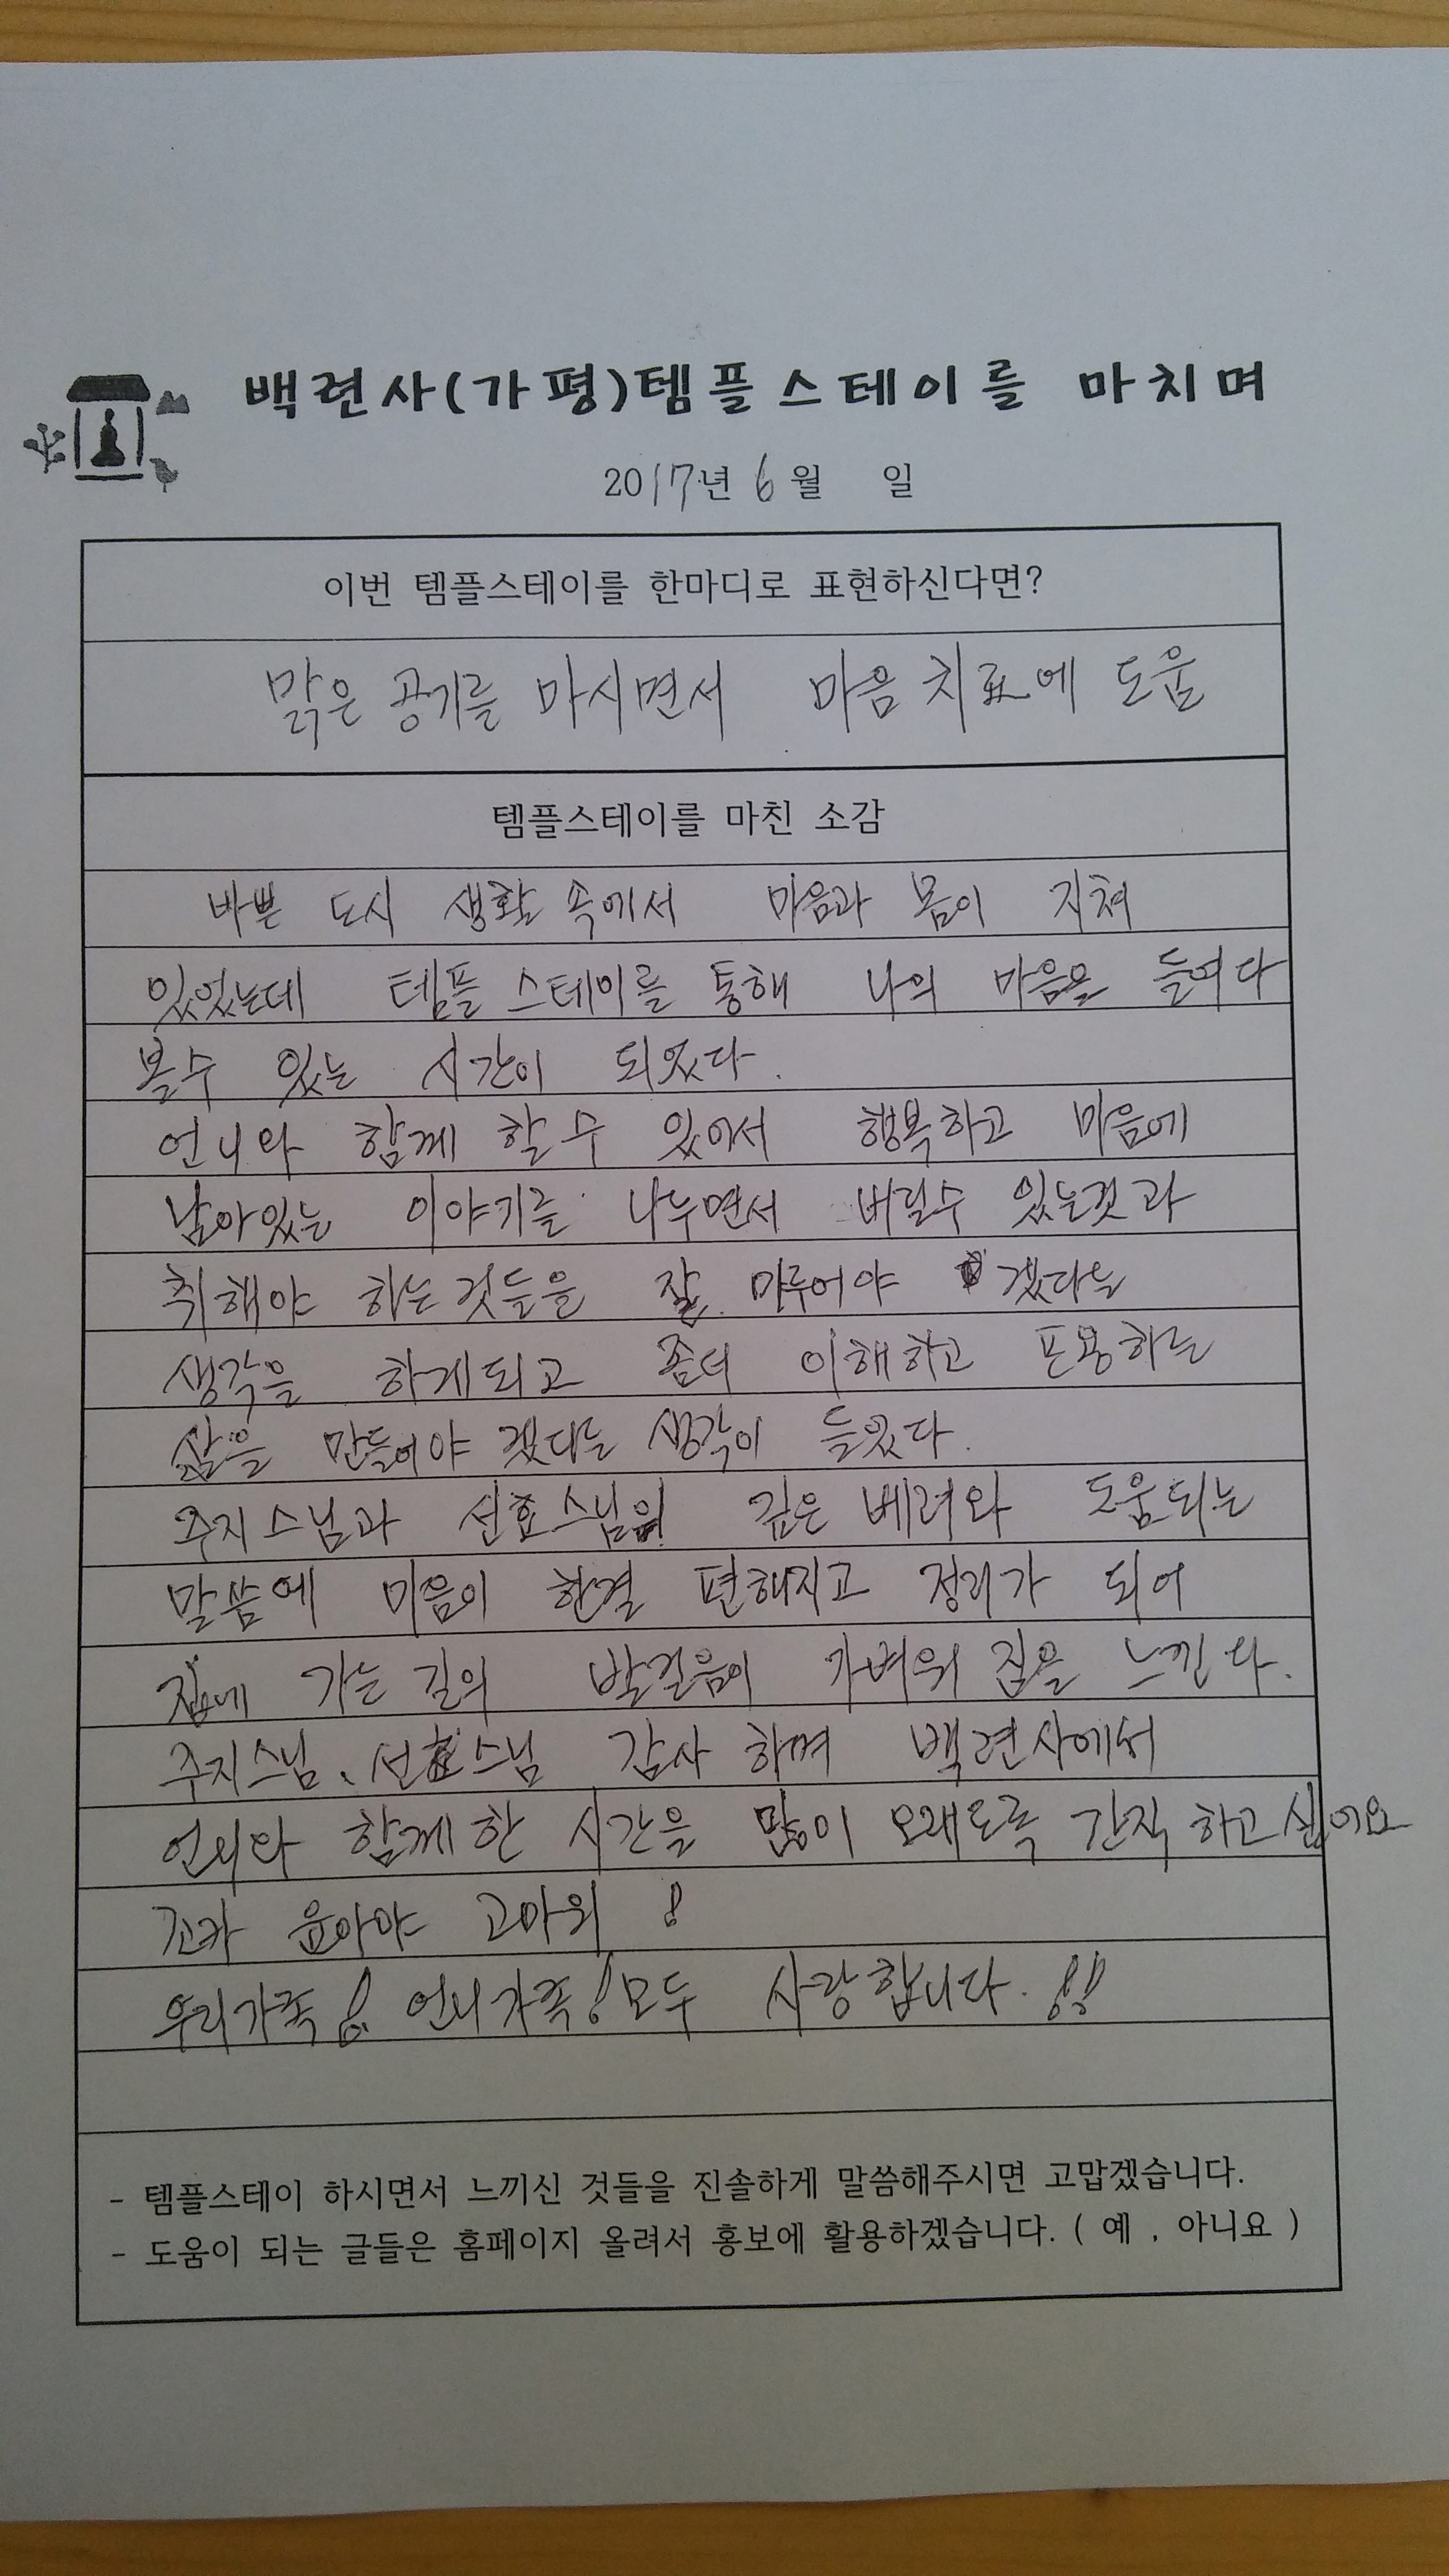 백련사(가평)템플스테이를 마치며
2017년 6월 일
이번 템플스테이를 한마디로 표현하신다면?
맑은 공기를 마시면서 마음 치료에 도움
템플스테이를 마친 소감
바쁜 도시 생활 속에서 마음과 몸이 지쳐
있었는데 템플스테이를 통해 나의 마음을 들여다
볼수 있는 시간이 되었다.
언니와 함께 할 수 있어서 행복하고 마음에
남아있는 이야기를 나누면서 버릴수 있는것과
취해야 하는것들을 잘 마루어야 겠다는
생각을 하게되고 좀더 이해하고 포용하는
삶을 만들어야 겠다는 생각이 들었다.
주지스님과 선효스님의 깊은 베려와 도움되는
말씀에 마음이 한결 편해지고 정리가 되어
집에 가는 길의 발걸음이 가벼워 짐을 느낀다.
주지스님、선효스님 감사 하며 백련사에서
언니와 함께한 시간을 많이 오래도록 간직 하고 싶어요
조카 윤아야 고마워 !
우리가족! 언니가족! 모두 사랑합니다. !!
- 템플스테이 하시면서 느끼신 것들을 진솔하게 말씀해주시면 고맙겠습니다.
- 도움이 되는 글들은 홈페이지 올려서 홍보에 활용하겠습니다. ( 예 , 아니요 )